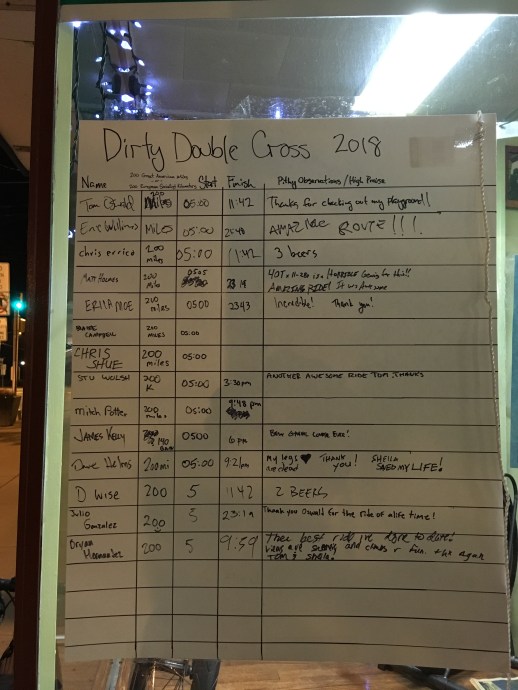 Dirty Double Cross 2018
Name 200 Great American Miles Start Finish Pithy Observations / High Praise
200 European Socialist Kilometers
Tom Oswald 200 Miles 05:00 11:42 Thanks for checking out my playground!!
Eric Williams Miles 05:00 ROUTE!!!
chris errico 200 miles 05:00 11:42 3 beers
Matt Holmes 200 mile 0505 23 19 HOT a is a Horrible for this!!
Amazing Ride! It was Awesome
Erik Noe 200 miles 0500 2343 Incredible! Thank you!
Campbell 200 miles 05:00
CHRIS SHUE 200 miles 05:00
STU WALSH 200 K 05:00 3:30pm ANOTHER AWESOME RIDE TOM, THANKS
Mitch Potter 200 miles 05:00 9:48 pm
James Kelly 140 0500 6pm Best Ever!
Dave Helms 200mi 05:00 9:21pm My legs are dead ♥ THANK YOU! SHEILA SAVED MY LIFE!
D wise 200 5 1142 2 BEERS
Julio Gonzalez 200 5 23:19 Thank you Oswald for the ride of a life time!
Bryan Hernandez 200 5 9:59 Thee best ride I've done to date!
Views and and climbs r fun. thx again
Tom & Sheila!